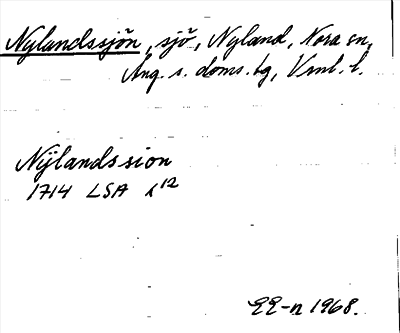 Nylandssjön, sjö, Nyland, Nora sn,
Ång. s. doms. tg, Vnl. l.
Nÿlandssion
1714 LSA λ 12
EE-n 1968.